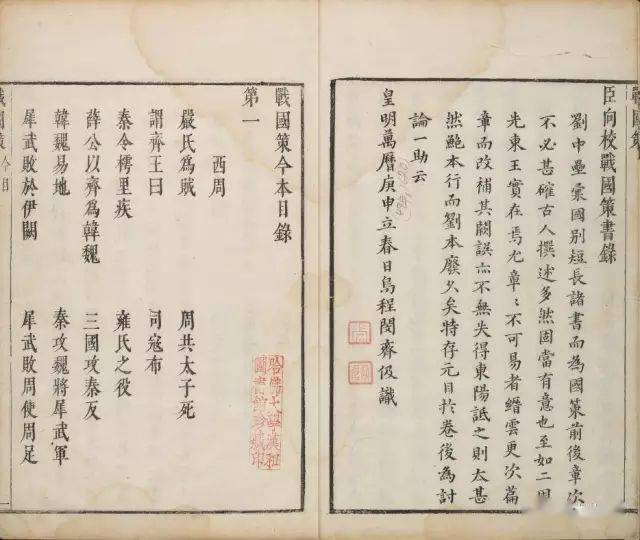 戰國策
臣向校戰國策書錄
劉中壘彙國別短長諸書而為國策前後章次
不必甚確古人撰述多然固當有意也至如二周
先東王實在焉尤章〻不可易者縉雲更次篇
章而改補其闕誤亦不無失得東陽詆之則太甚
然鮑本行而劉本廢久矣特存元目於卷後為討
論一助云
皇明萬曆庚申立春日烏程閔齊伋識
戰國策今本目錄
第一
西周
嚴氏為賊　周共太子死
謂齊王曰　司寇布
秦令樗里疾　雍氏之役
薛公以齊為韓魏　三國攻秦反
韓魏易地　秦攻魏將犀武軍
犀武敗於伊闕　犀武敗周使周足
戰國策　今目　一
哈佛大學漢和
圖書館珍藏印